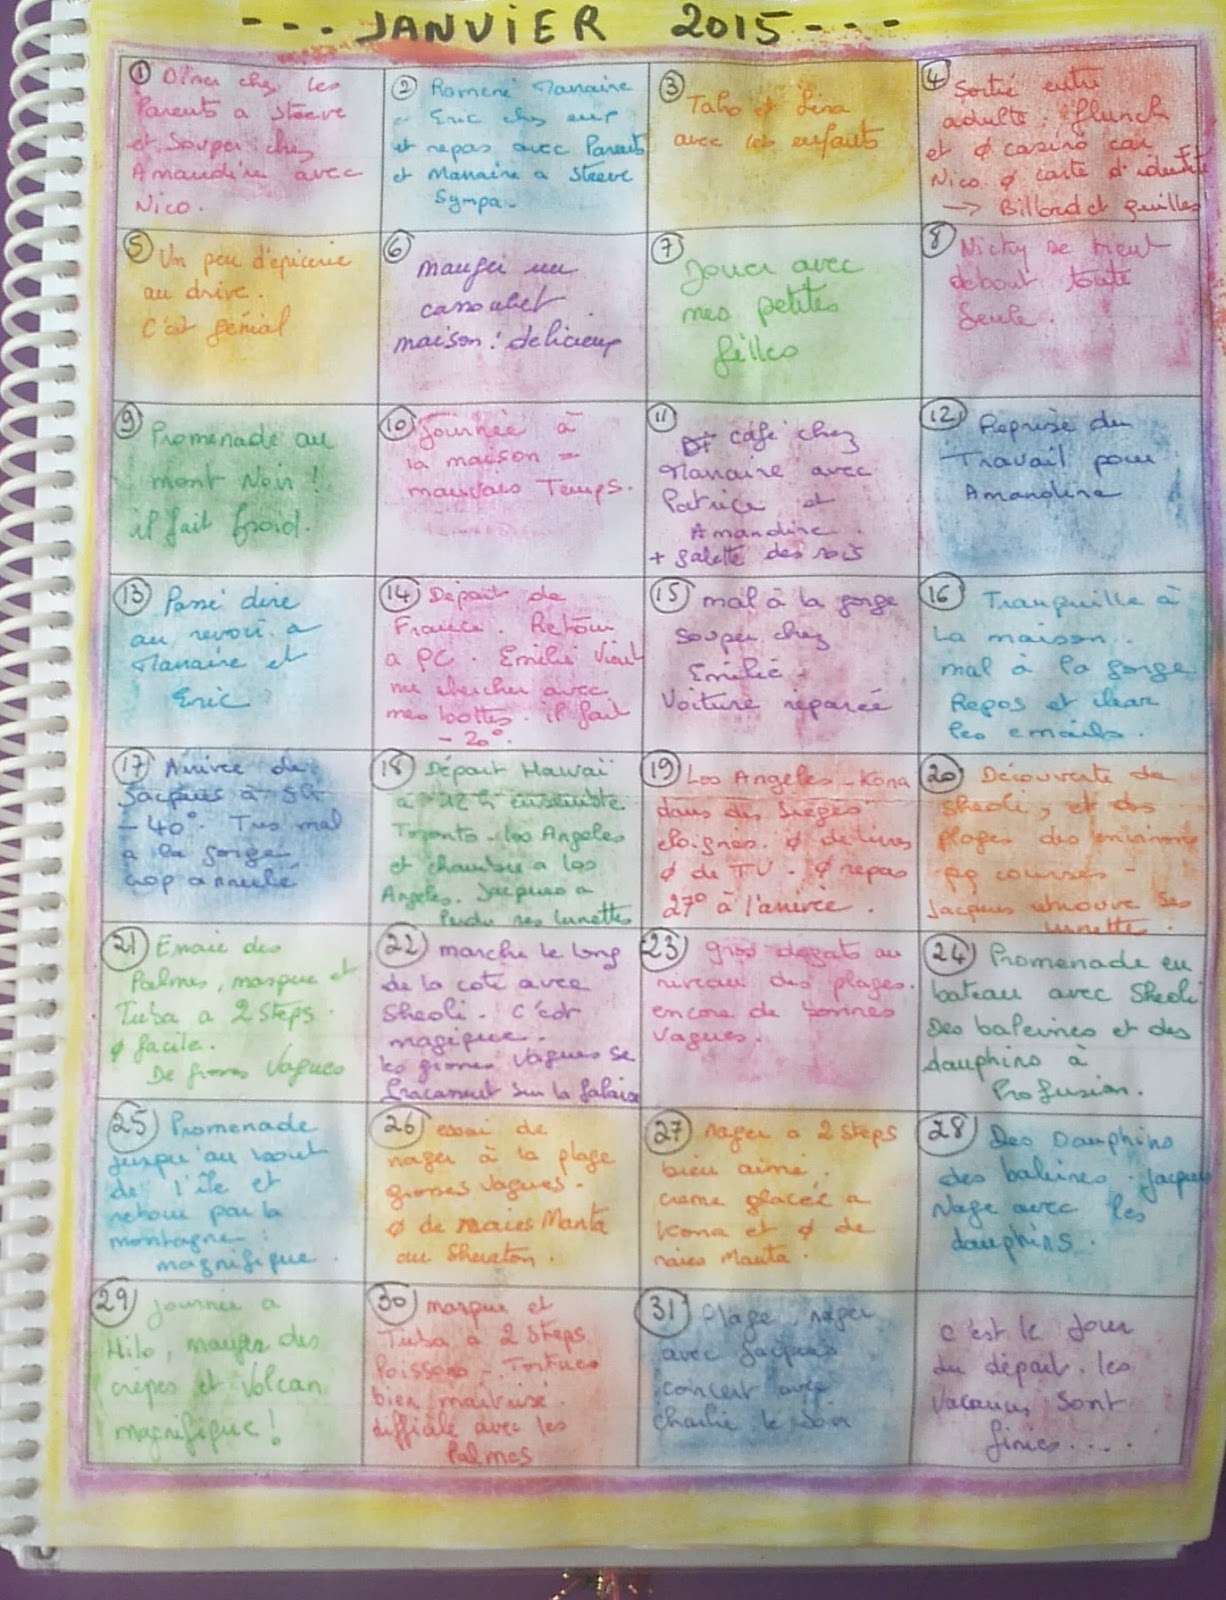 --- JANVIER 2015 ---
① Diner chez les
Parents a Steeve
et Souper chez
Amandine avec
Nico.
② Ramené Manaire
Eric chez eux
et repas avec Parents
et Manaire a Steeve
Sympa.
③
Taho et Lina
avec les enfants
④ Sortie entre
adulte : flunch
et ∅ casino car
Nico ∅ carte d'identité
→ Billard et quilles
⑤ Un peu d'epicerie
au drive.
C'est génial
⑥
manger un
cassoulet
maison : delicieux
⑦
Jouer avec
mes petites
filles
⑧ Nicky se tient
debout toute
seule.
⑨ Promenade au
mont Noir !
il fait froid.
⑩ Journée à
la maison =
mauvais Temps.
⑪ café chez
Manaire avec
Patrice et
Amandine.
+ galette des rois
⑫ Reprise du
Travail pour
Amandine
⑬ Passé dire
au revoir a
Manaire et
Eric
⑭ Départ de
France. Retour
a PC. Emilie vient
me chercher avec
mes bottes. il fait
- 20°.
⑮ mal à la gorge
souper chez
Emilie.
Voiture réparée
⑯ Tranquille à
la maison.
mal à la gorge
Repos et
les emails.
⑰ Arrivée de
Jacques à
- 40°. Tres mal
a la gorge,
trop annulé
⑱ Départ Hawaï
à 12 h ensemble
Toronto - Los Angeles
et chambre a Los
Angeles. Jacques a
Perdu ses lunettes
⑲ Los Angeles - Kona
dans des sieges
éloignés. ∅ de livres
∅ de TV. ∅ repas
27° à l'arrivée.
⑳ Découverte de
Sheoli, et des
plages des environs
pq courses -
Jacques retrouve ses
lunettes.
㉑ Essaie des
Palmes, masque et
Tuba a 2 Steps.
∅ facile.
De grosses vagues
㉒ marche le long
de la cote avec
Sheoli. C'est
magique.
les grosses vagues se
fracassent sur la falaise
㉓ gros degats au
niveau des plages.
encore de bonnes
vagues.
㉔ Promenade en
bateau avec Sheoli
Des baleines et des
dauphins à
Profusion.
㉕ Promenade
jusqu'au bout
de l'île et
retour par la
montagne :
magnifique.
㉖ essai de
nager à la plage
grosses vagues -
∅ de raies Manta
au Sheraton.
㉗ Nager a 2 Steps
bien aimé.
creme glacée a
Kona et ∅ de
raies Manta.
㉘ Des Dauphins
des baleines. Jacques
Nage avec les
dauphins.
㉙ Journée a
Hilo, manger des
crêpes et Volcan
magnifique !
㉚ masque et
Tuba a 2 Steps
Poissons - Tortues
bien maitrisé.
difficile avec les
Palmes
㉛ Plage, nager
avec Jacques
concert avec
Charlie le soir
C'est le jour
du départ. les
vacances sont
finies....